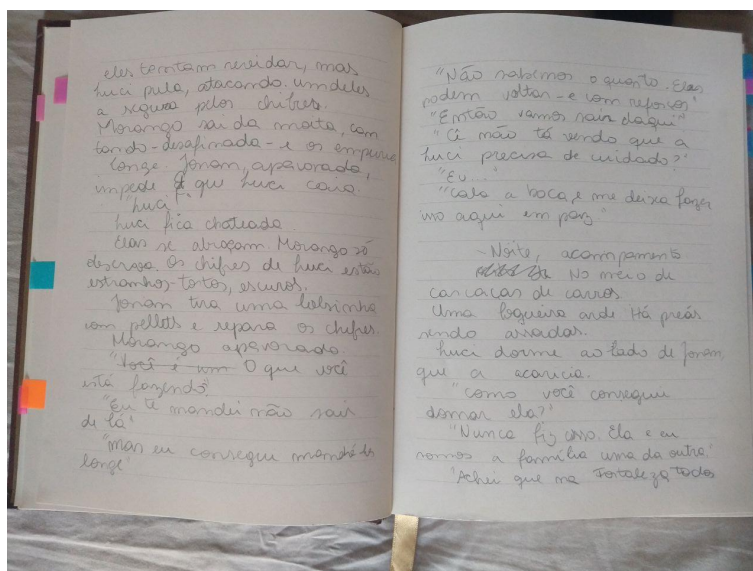 eles tentam revidar, mas
huci pula, atacando. um deles
a segura pelos chifres.
Morango sai da moita, can
tando-desafinada-e os empurra
longe. Jonam, apavorada,
impede q. que huci caia.
"huci"
huci fica chateada
Elas se abraçam. Morango só
descrosa. Os chifres de huci estão
estranhos-tortos, escuros.
Jonam tira uma bolsinha
com pellets e repara os chifres.
Morango apavorada.
"Você é um O que você
está fazendo?"
"Eu te mandei não sair
de lá"
"mas eu consegui mandá-los
longe"
"Não sabemos o quanto. Elas
podem voltar-e com reforços"
"Então vamos sair daqui"
"Cê não tá vendo que a
huci precisa de cuidado?"
"Eu..."
"Cala a boca, e me deixa fazer
isso aqui em paz."
~Noite, acampamento
No meio de
carcaças de carros
Uma fogueira arde. Há preás
sendo assadas.
huci dorme ao lado de Jonam,
que a acaricia.
"como você conseguiu
domar ela?"
"Nunca fiz isso. Ela e eu
somos a família uma da outra."
"Achei que na Fortaleza todos